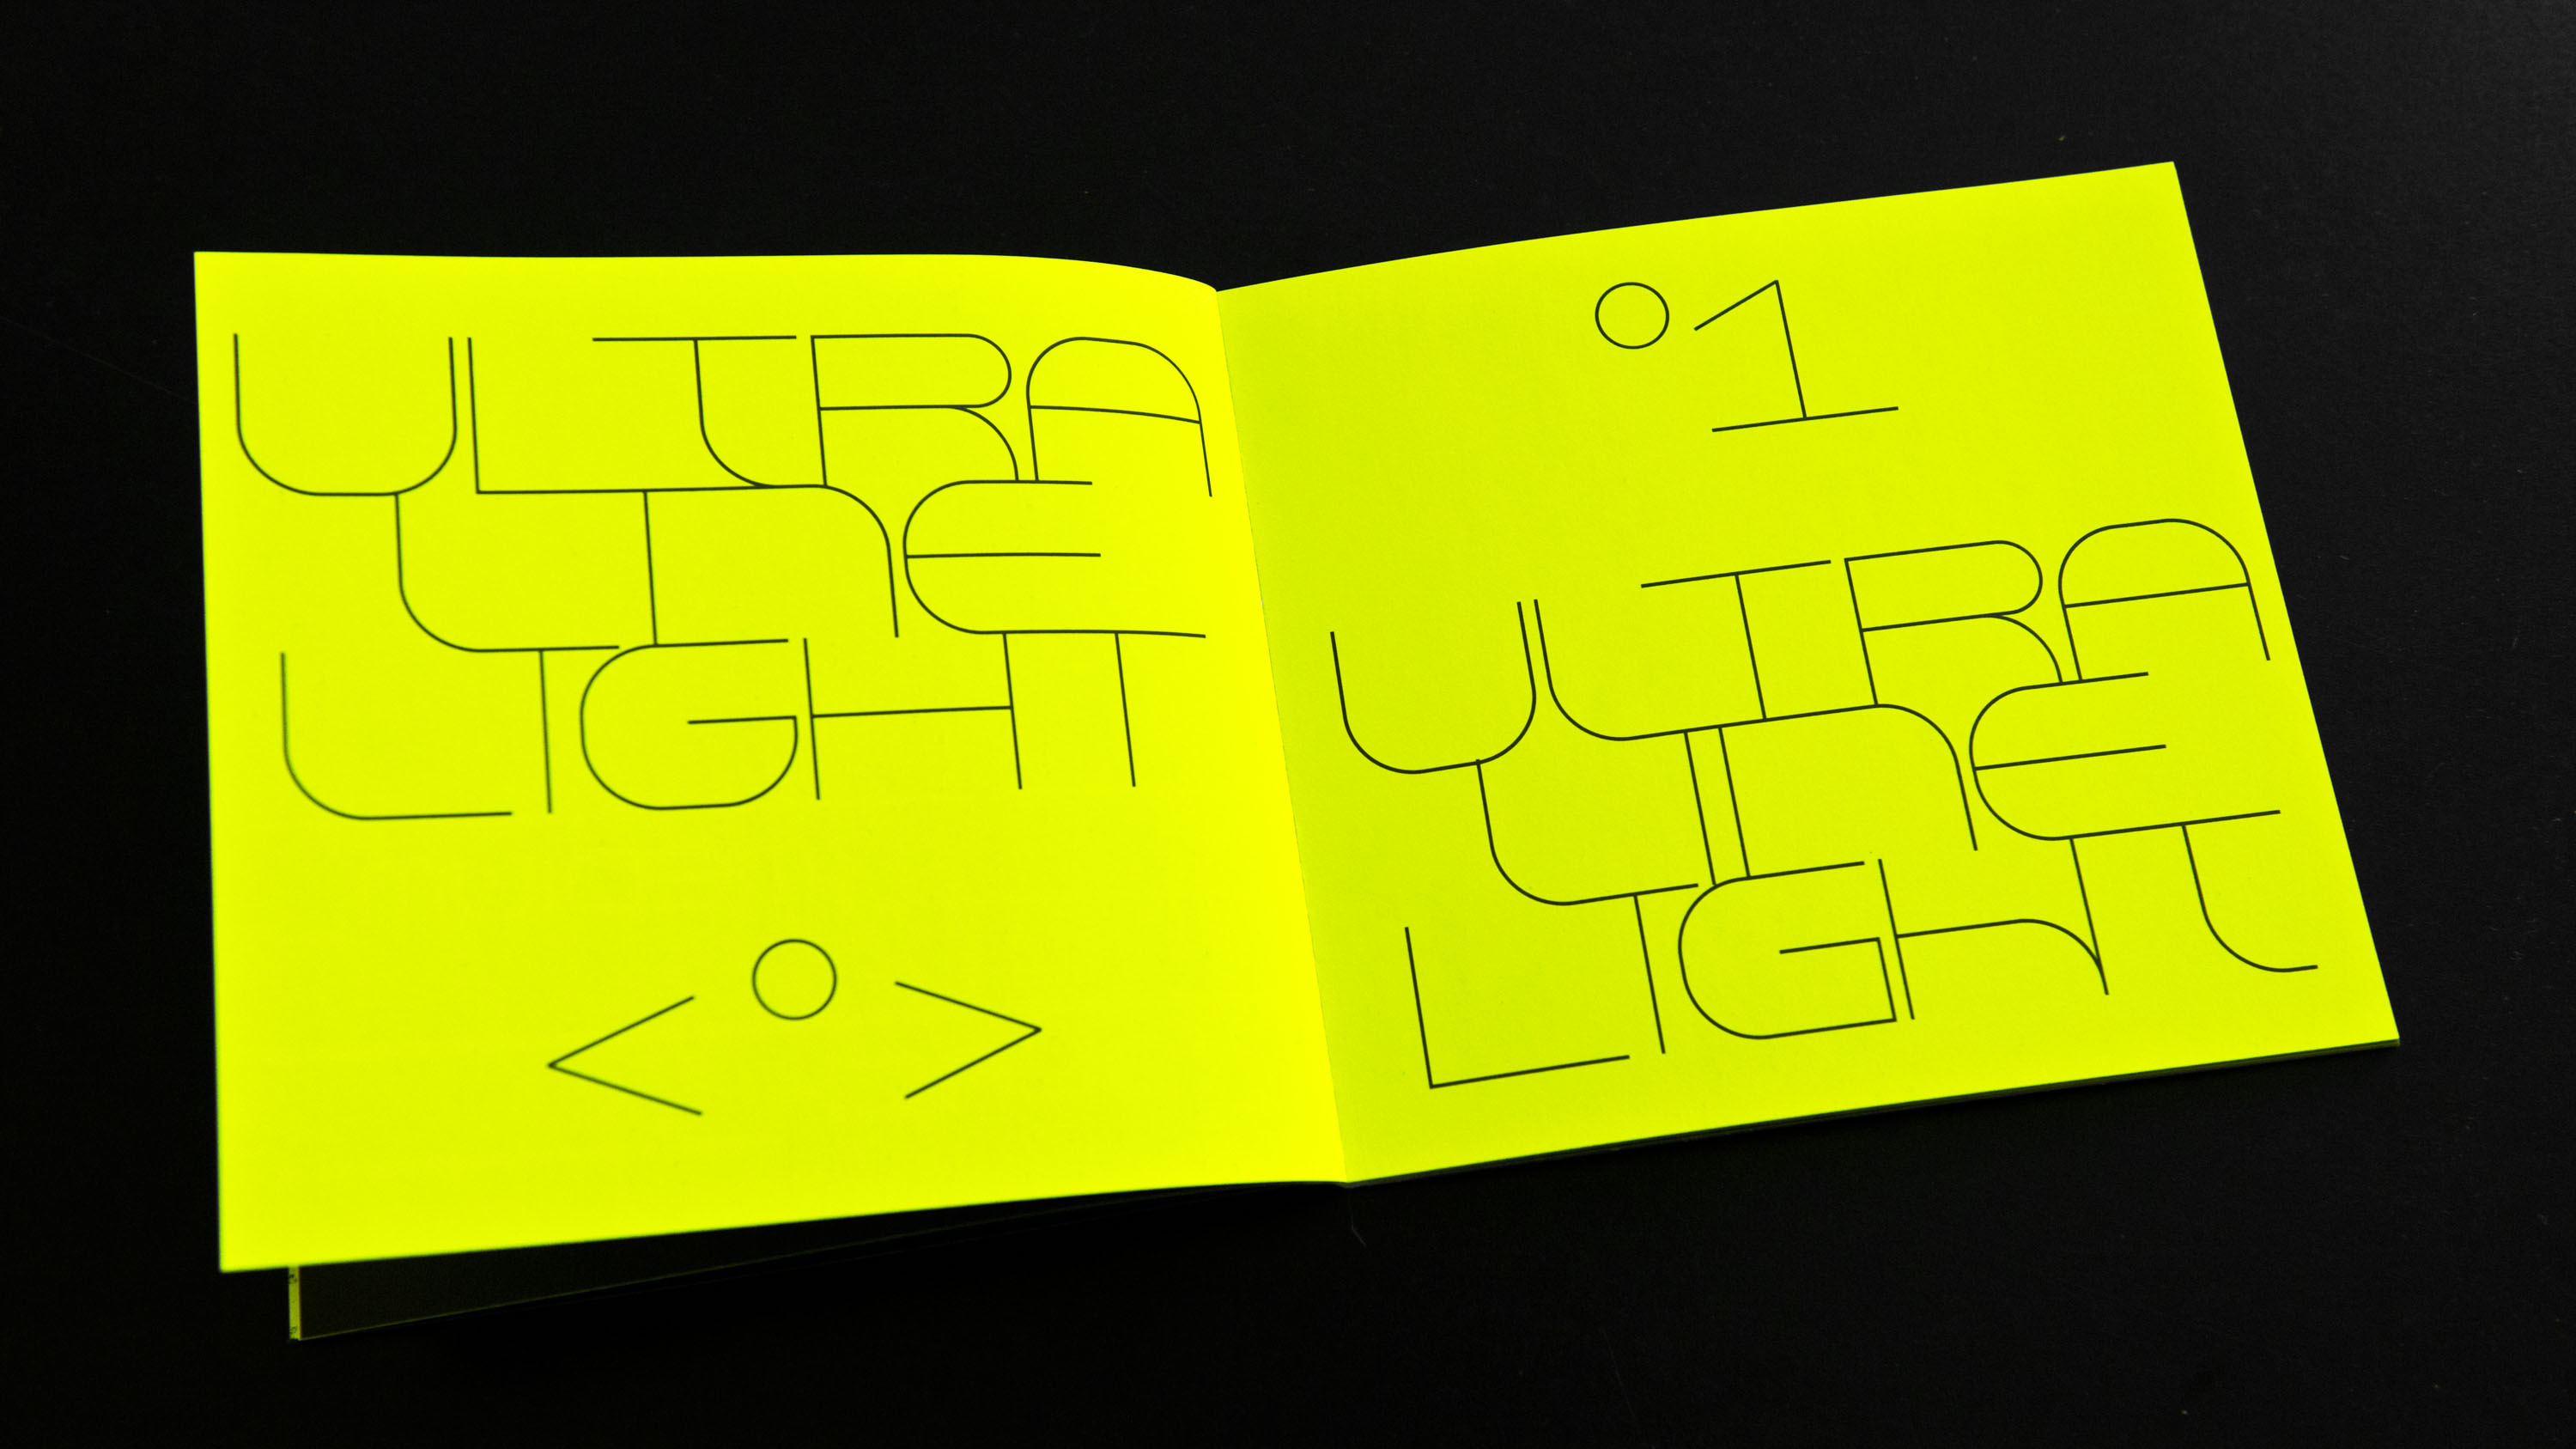 ULTRA
LINE
LIGHT
< ° >
°1
ULTRA
LINE
LIGHT